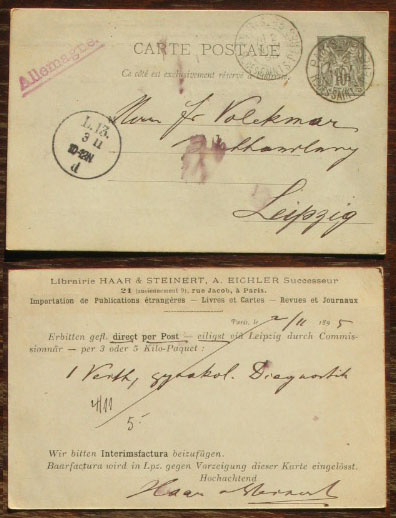 CARTE POSTALE
Ce côté est exclusivement réservé à
Allemagne.
PARIS
10
L. 13.
3 11
Herrn Fr Volckmar
Buchhandlung
Leipzig
Librairie HAAR & STEINERT, A. EICHLER Successeur
21 (anciennement 9), rue Jacob, à Paris.
Importation de Publications étrangères — Livres et Cartes — Revues et Journaux
Paris, le 2/11 1895
Erbitten gefl. direct per Post — eiligst via Leipzig durch Commis-
sionär — per 3 oder 5 Kilo-Paquet :
1 Veith, gynäkol. Diagnostik
4/11
5.-
Wir bitten Interimsfactura beizufügen.
Baarfactura wird in Lpz. gegen Vorzeigung dieser Karte eingelöst.
Hochachtend
Haar & Steinert